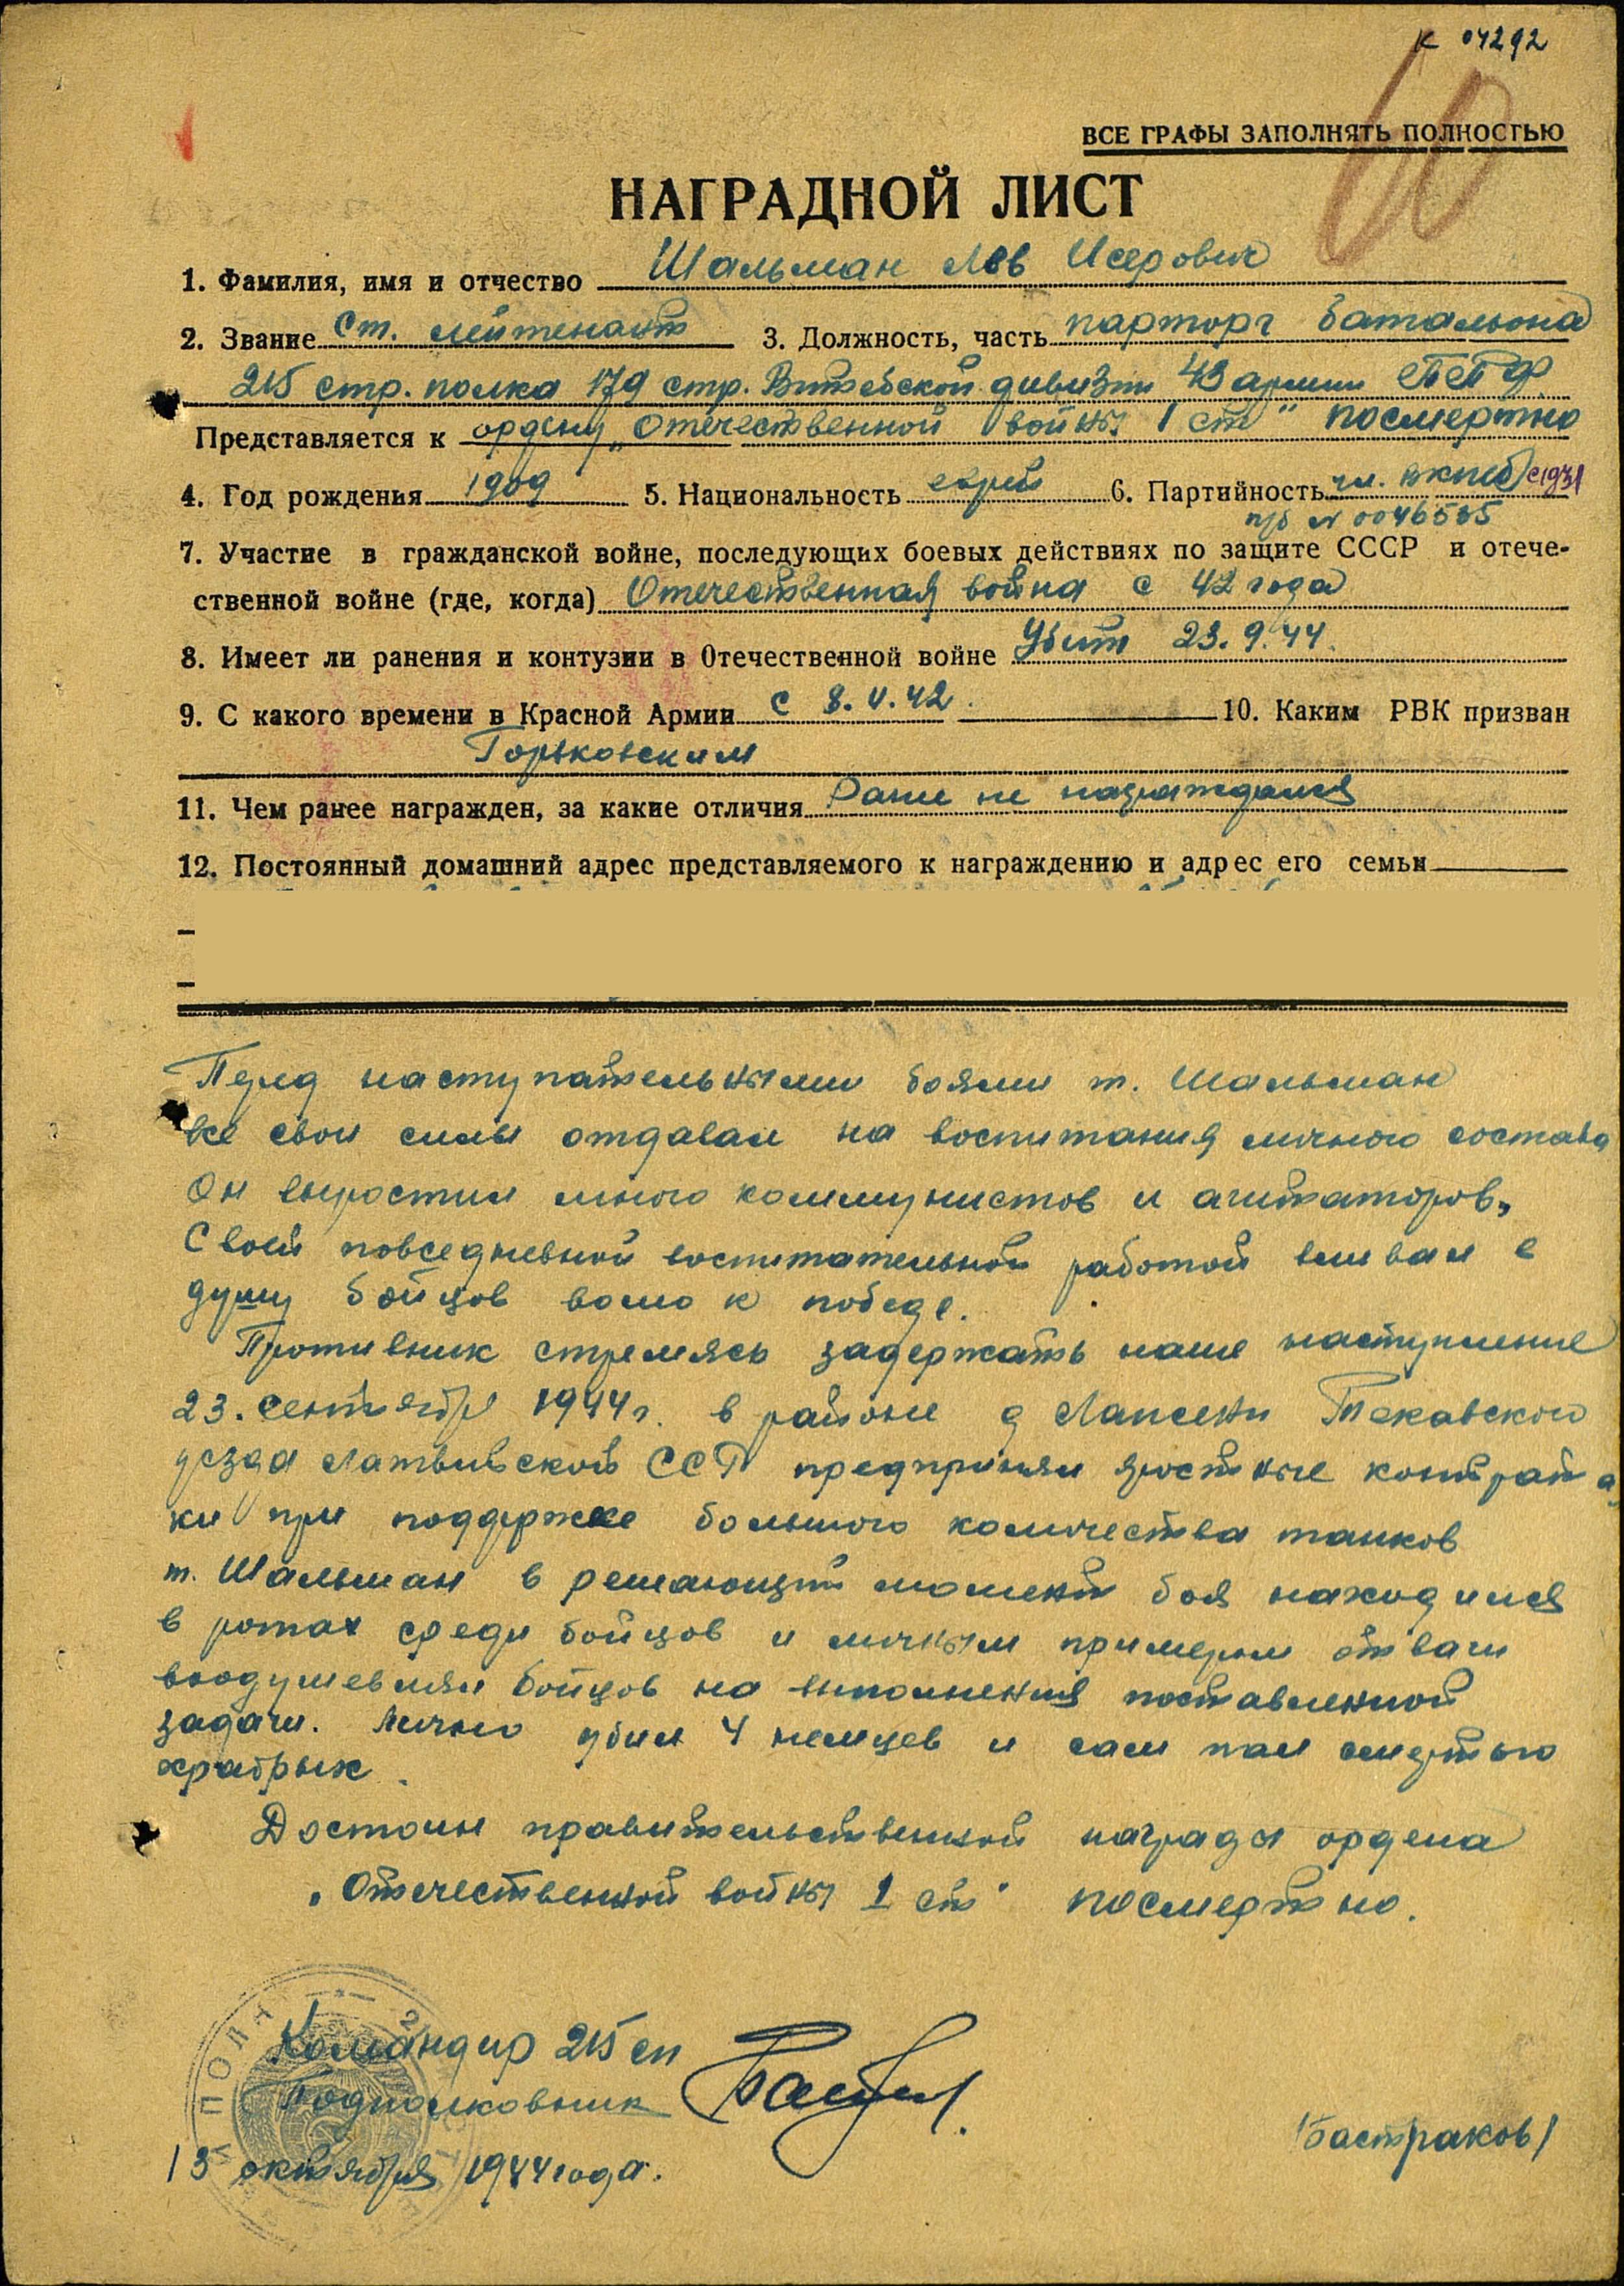 к 04292
60
ВСЕ ГРАФЫ ЗАПОЛНЯТЬ ПОЛНОСТЬЮ
НАГРАДНОЙ ЛИСТ
1. Фамилия, имя и отчество Шальман Лев Исерович
2. Звание Ст. лейтенант 3. Должность, часть парторг батальона
215 стр. полка 179 стр. Витебской дивизии 43 армии 1ПФ
Представляется к ордену „Отечественной войны 1 ст" посмертно
4. Год рождения 1909 5. Национальность еврей 6. Партийность чл. ВКП(б) с 1931
п/б № 0046535
7. Участие в гражданской войне, последующих боевых действиях по защите СССР и отече-
ственной войне (где, когда) Отечественная война с 42 года
8. Имеет ли ранения и контузии в Отечественной войне Убит 23.9.44.
9. С какого времени в Красной Армии с 8.V.42. 10. Каким РВК призван
Горьковским
11. Чем ранее награжден, за какие отличия Ранее не награждался
12. Постоянный домашний адрес представляемого к награждению и адрес его семьи
Перед наступательными боями т. Шальман
все свои силы отдавал на воспитания личного состава
Он выростил много коммунистов и агитаторов,
Своей повседневной воспитательной работой вливал в
душу бойцов волю к победе.
Противник стремясь задержать наше наступление
23. сентября 1944 г. в районе д Лапсены
уезда Латвийской ССР предпринял яростные контрата
ки при поддержке большого количества танков
т. Шальман в решающий момент боя находился
в ротах среди бойцов и личным примером отваги
воодушевлял бойцов на выполнения поставленной
задачи. Лично убил 4 немцев и сам пал смертью
храбрых.
Достоин правительственной награды ордена
„Отечественной войны 1 ст" посмертно.
Командир 215 сп
Подполковник
/Бастраков/
13 октября 1944 года.